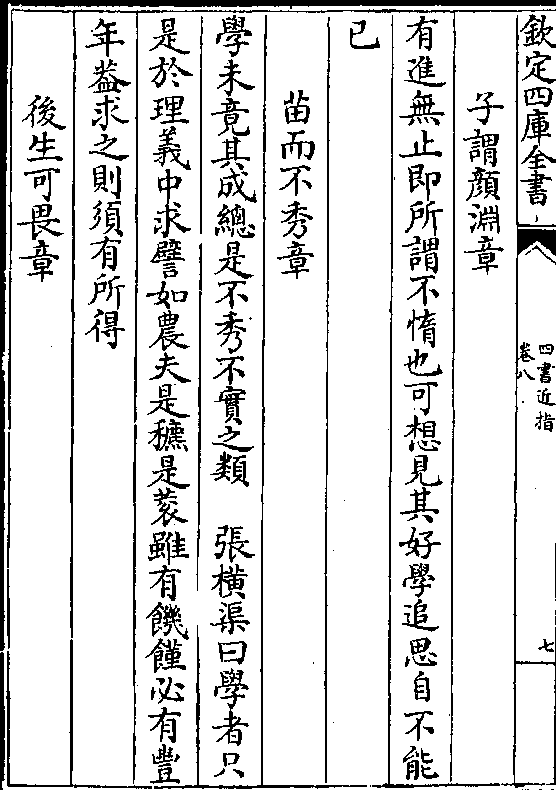 欽定四庫全書
四書近指
卷八
七
子謂顏淵章
有進無止即所謂不惰也可想見其好學追思自不能
已
苗而不秀章
學未竟其成總是不秀不實之類　張橫渠曰學者只
是於理義中求譬如農夫是穮是蓘雖有饑饉必有豐
年葢求之則須有所得
後生可畏章